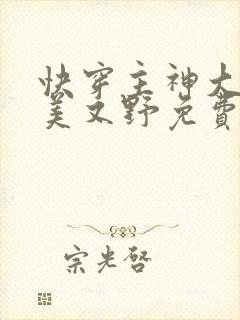 快穿主神大
美又野免费
宗光启